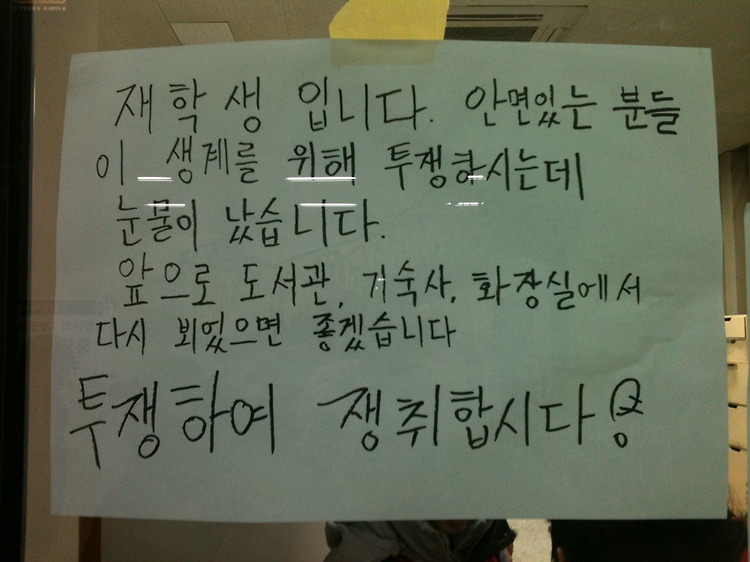 재학생 입니다. 안면있는 분들
이 생계를 위해 투쟁하시는데
눈물이 났습니다.
앞으로 도서관, 기숙사, 화장실에서
다시 뵈었으면 좋겠습니다
투쟁하여 쟁취합시다!